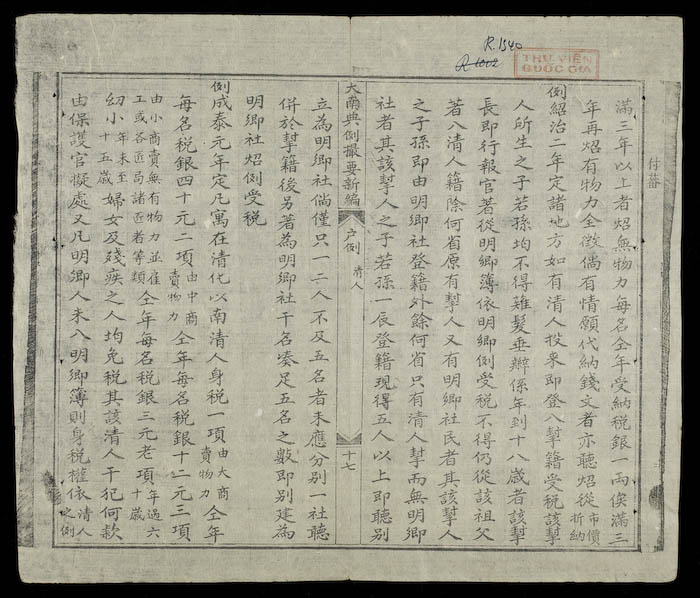 R.1540
R.1002
THƯ VIỆN
QUỐC GIA
付蕃
滿三年以上者炤無物力每名全年受納稅銀一両俟滿三
年再炤有物力全徵倘有情願代納錢文者亦聽炤從市價折納
例紹治二年定諸地方如有清人投來即登入幇籍受稅該幇
人所生之子若孫均不得薙髮垂辮係年到十八歲者該幇
長即行報官著從明鄉簿依明鄉例受稅不得仍從該祖父
著入清人籍除何省原有幇人又有明鄉社民者其該幇人
之子孫即由明鄉社登籍外餘何省只有清人幇而無明鄉
社者其該幇人之子若孫一辰登籍現得五人以上即聽別
大南典例撮要新編
戶例
清人
十七
立為明鄉社倘僅只一二人不及五名者未應分別一社聽
併於幇籍後另著為明鄉社千名湊足五名之數即別建為
明鄉社炤例受稅
例成泰元年定凡寓在清化以南清人身稅一項由大商賣物力全年
每名稅銀四十元二項由中商賣物力全年每名稅銀十二元三項
由小商賣無有物力並雇工或各匠局諸匠者等類全年每名稅銀三元老項年過六十歲
幼小年未至十五歲婦女及殘疾之人均免稅其該清人干犯何款
由保護官擬處又凡明鄉人未入明鄉簿則身稅權依清人之例